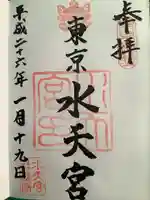 奉拝
東京
水天宮
平成二十六年一月十九日